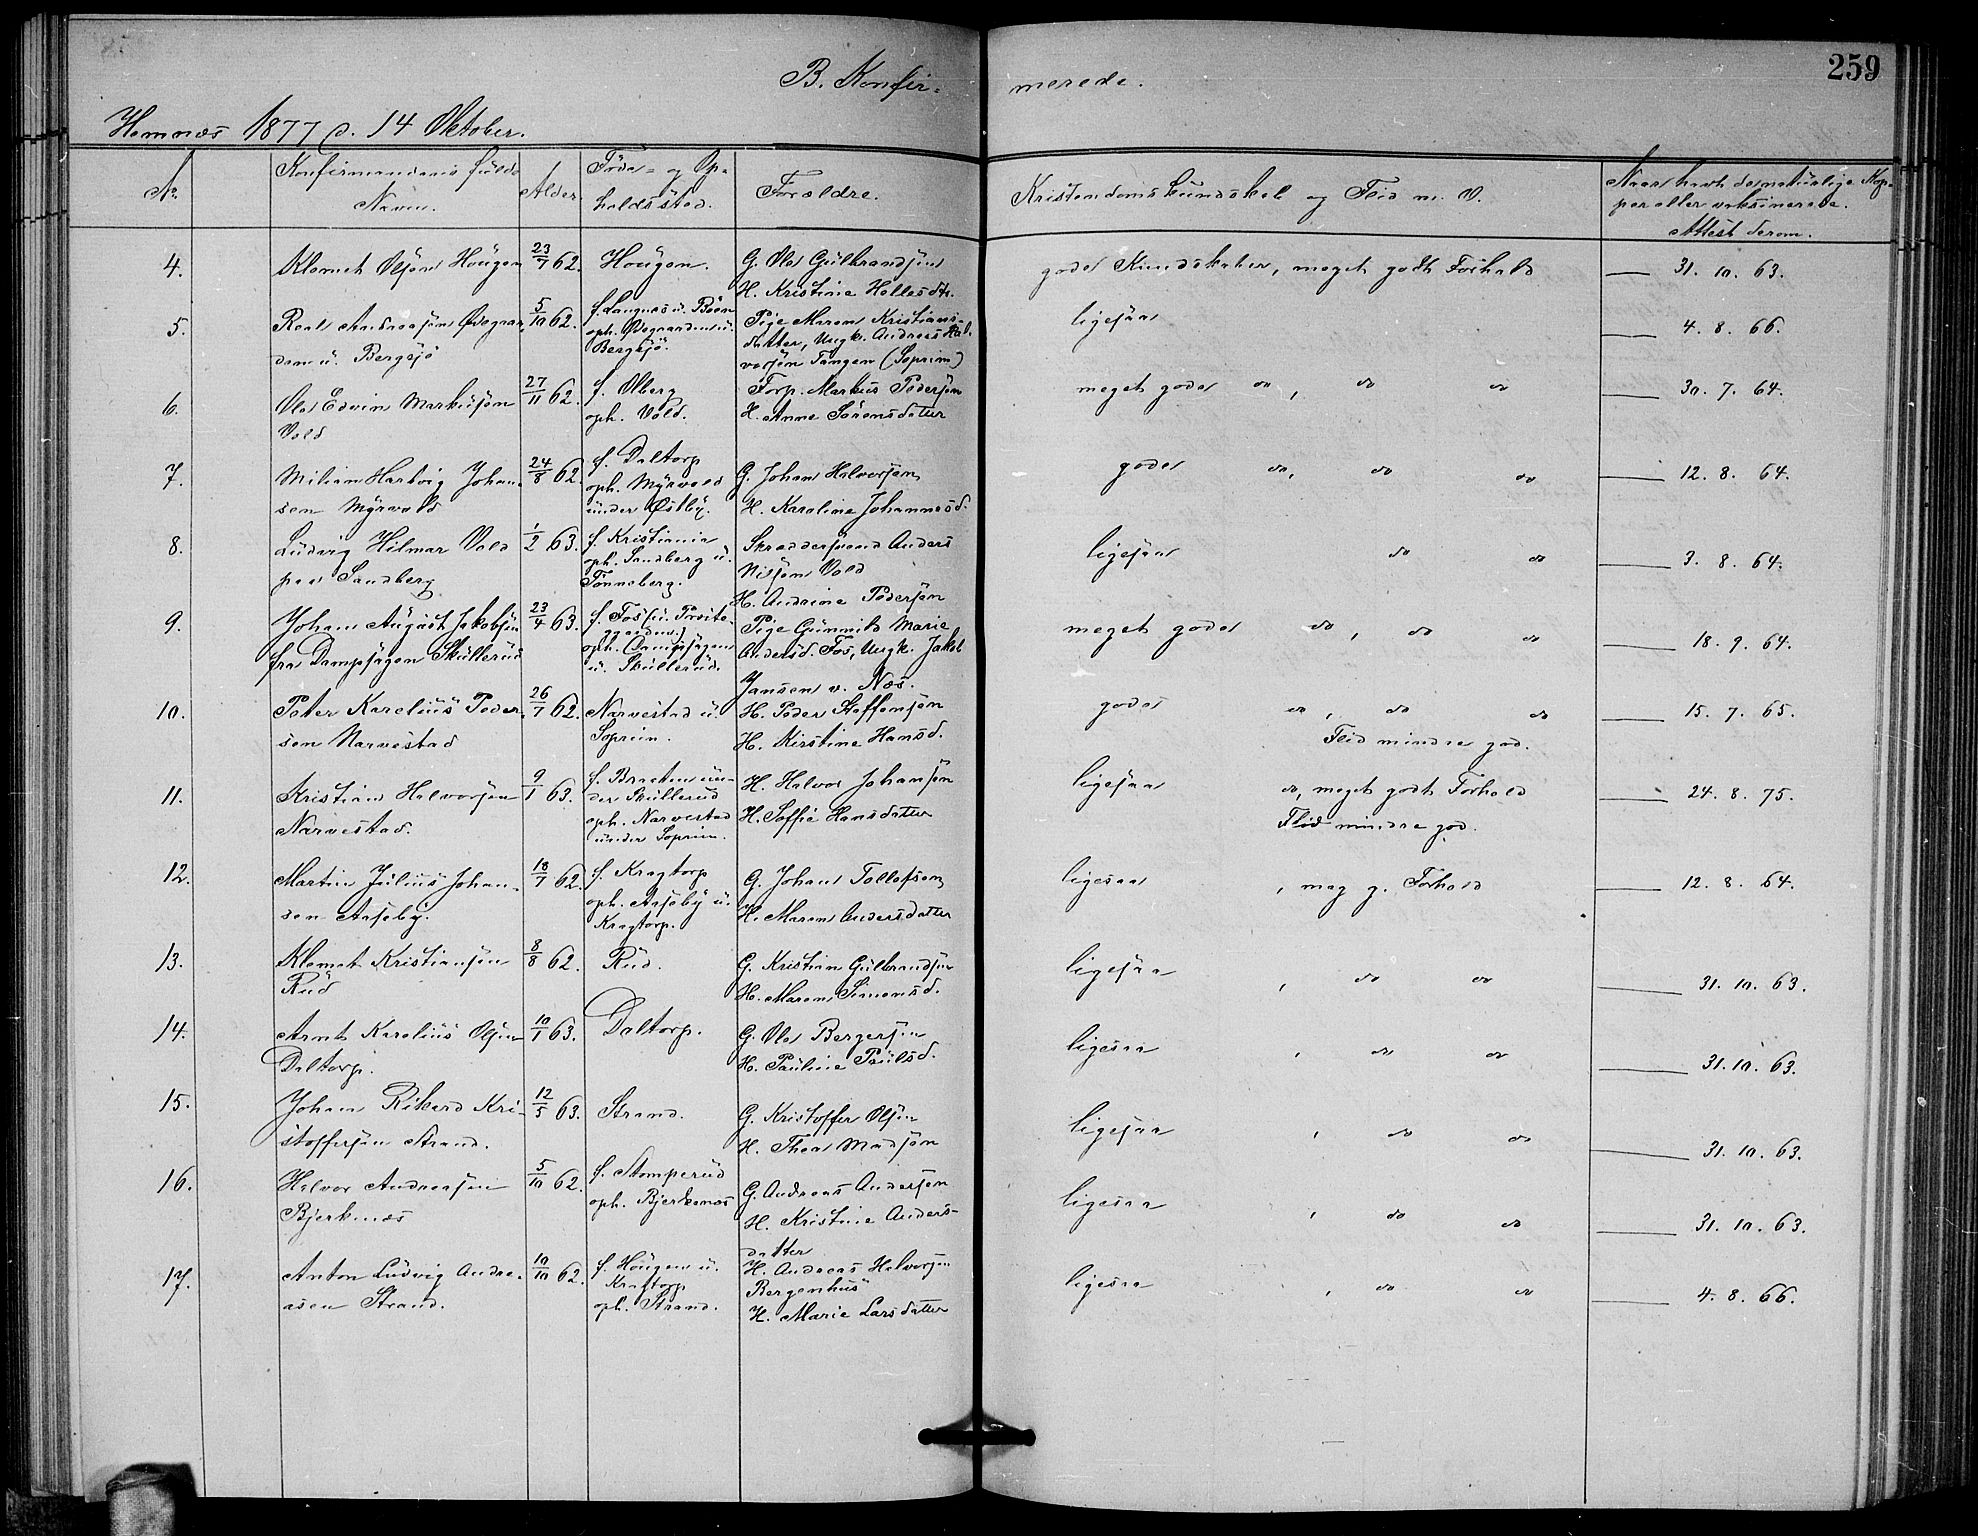 259
B. Konfir-
merede.
Hemnæs 1877 d. 14 Oktober.
No.
Konfirmandens fulde
Navn.
Alder.
Føde- og Op-
holdssted.
Forældre.
Kristendomskundskab og Flid m. V.
Naar havt de naturlige Kop-
per eller vaksinerede.
Attest derom.
4. Klemet Olsen Hougen 23/7 62. Hougen. G. Ole Gulbrandsen gode Kundskaber, meget godt Forhold — 31. 10. 63.
H. Kristine Hellesdtr.
5. Real Andreasen Øvegaar- 5/10 62. f. Langnes u. Bøen Pige Maren Kristians- ligesaa — 4. 8. 66.
den u. Bergsjø oph. Øvegaarden u. datter, Ungk. Andreas Hal-
Bergsjø. vorsen Tangen (Soprim)
6. Ole Edvin Markusen 27/11 62. f. Olberg Forp. Markus Pedersen meget gode do, do do — 30. 7. 64.
Vold oph. Vold. H. Anne Sørensdatter
7. Milian Hartvig Johan- 24/8 62. f. Daltorp G. Johan Halvorsen gode do, do do — 12. 8. 64.
sen Myrvold oph. Myrvold H. Karoline Johannesd.
under Østby.
8. Ludvig Hilmar Vold 1/2 63. f. Kristiania Skreddersvend Anders ligesaa do do — 3. 8. 64.
paa Sandberg oph. Sandberg u. Nilsen Vold
Tønneberg. H. Andrine Pedersen
9. Johan August Jakobsen 23/4 63. f. Fos (u. Preste- Pige Gunnild Marie meget gode do, do do — 18. 9. 64.
fra Dampsagen Skullerud ggaarden) Andersd. Fos, Ungk. Jakob
oph. Dampsagen Jansen v. Næs.
u. Skullerud.
10. Peter Karelius Peder- 26/7 62. Narvestad u. H. Peder Steffensen gode do, do do — 15. 7. 65.
sen Narvestad Soprim. H. Kirstine Hansd. Flid mindre god.
11. Kristian Halvorsen 9/1 63. f. Braaten un- H. Halvor Johansen ligesaa do, meget godt Forhold — 24. 8. 75.
Narvestad. der Skullerud H. Soffie Hansdatter Flid mindre god.
oph. Narvestad
under Soprim.
12. Martin Julius Johan- 18/7 62. f. Kragtorp G. Johan Tollefsen ligesaa, meg g. Forhold — 12. 8. 64.
sen Aaseby. oph. Aaseby u. H. Maren Andersdatter
Kragtorp.
13. Klemet Kristiansen 8/8 62. Rud. G. Kristian Gulbrandsen ligesaa, do do — 31. 10. 63.
Rud H. Maren Simensd.
14. Arnt Karelius Olsen 10/1 63. Daltorp. G. Ole Bergersen ligesaa, do do — 31. 10. 63.
Daltorp. H. Pauline Paulsd.
15. Johan Rikard Kri- 12/5 63. Strand. G. Kristoffer Olsen ligesaa, do do — 31. 10. 63.
stoffersen Strand. H. Thea Madsen
16. Halvor Andreasen 5/10 62. f. Stomperud G. Andreas Andersen ligesaa, do do — 31. 10. 63.
Bjerknæs oph. Bjerkenæs H. Kristine Anders-
datter
17. Anton Ludvig Andre- 10/10 62. f. Hougen u. H. Andreas Halvorsen ligesaa, do do — 4. 8. 66.
asen Strand. Kragtorp Bergenhus
oph. Strand. H. Marie Larsdatter